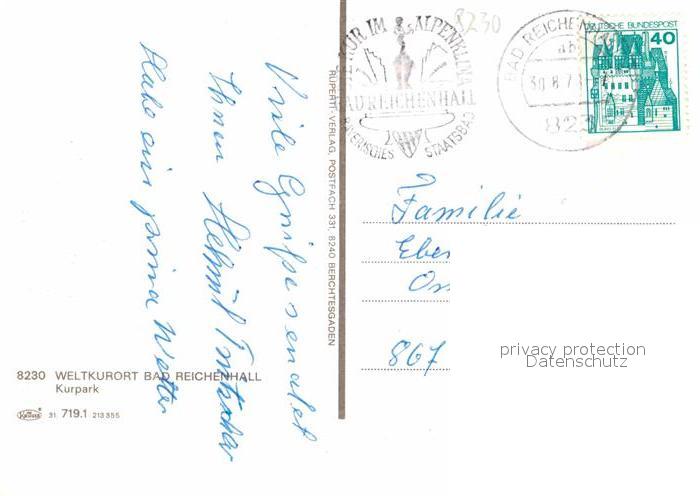 8230
KUR IM ALPENKLIMA
BAD REICHENHALL
BAYERISCHES STAATSBAD
BAD REICHENHALL
ab
30.8.7
823
DEUTSCHE BUNDESPOST
40
Viele Grüße sendet
Ihnen Helmut
Habe ein prima Wetter
RUPERTI-VERLAG, POSTFACH 331, 8240 BERCHTESGADEN
Familie
Eber
867
8230 WELTKURORT BAD REICHENHALL
Kurpark
Krüger 31 719.1 213 355
privacy protection
Datenschutz